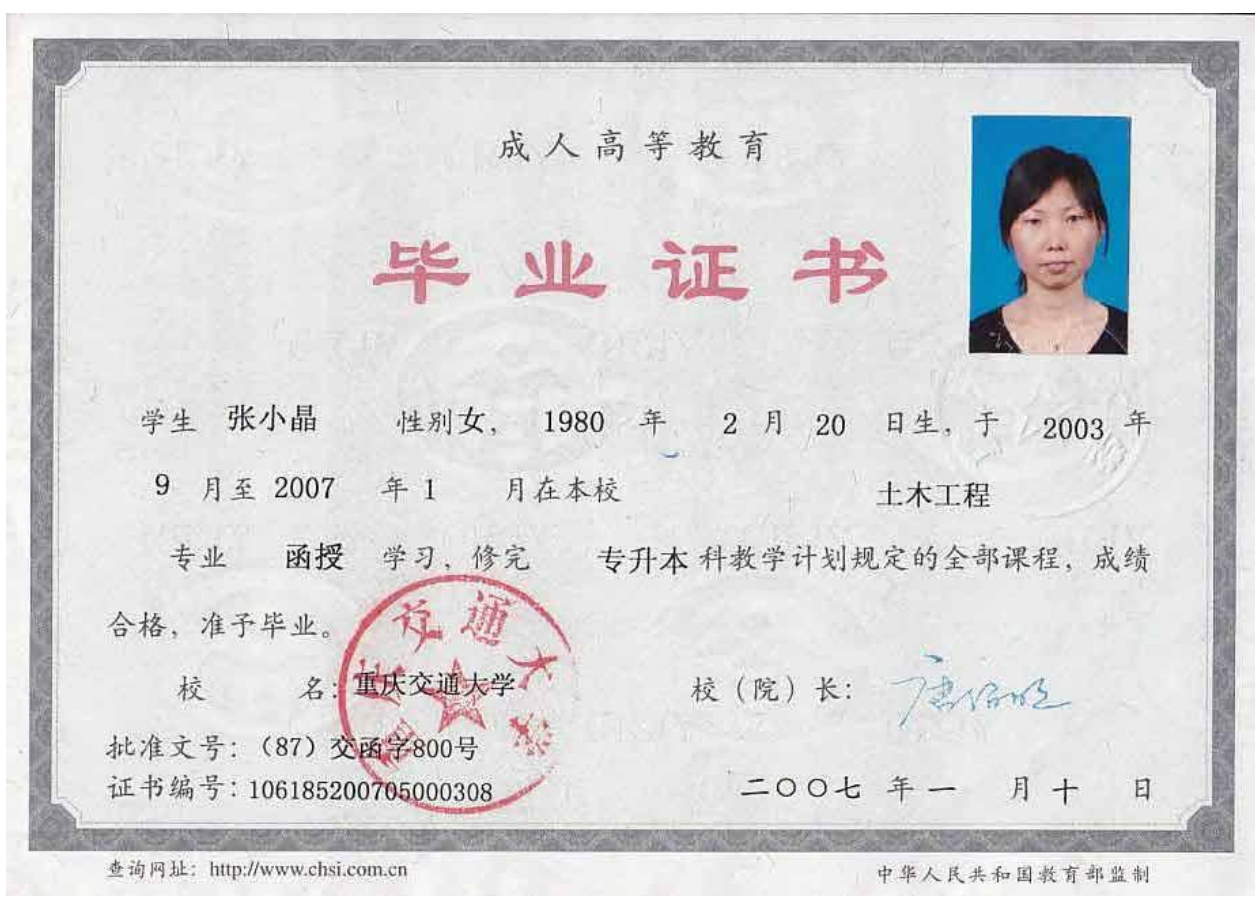 成人高等教育
毕业证书
学生 张小晶 性别女, 1980 年 2 月 20 日生, 于 2003 年
9 月至 2007 年 1 月在本校 土木工程
专业 函授 学习, 修完 专升本 科教学计划规定的全部课程, 成绩
合格, 准予毕业。
校 名: 重庆交通大学 校(院)长: 唐伯明
批准文号: (87) 交函字800号
证书编号: 106185200705000308 二〇〇七 年 一 月 十 日
重庆交通大学
查询网址: http://www.chsi.com.cn 中华人民共和国教育部监制